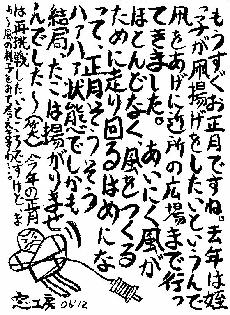 もうすぐお正月ですね。去年は姪
っ子が凧揚げをしたいというんで
凧をあげに近所の広場まで行っ
てきました。あいにく風が
ほとんどなく風をつくる
ために走り回るはめにな
って、正月そうそう
ハァハァ状態でしかも
結局、たこは揚がりませ
んでした〜(笑)今年の正月
は再挑戦したいところですけどね
06.12